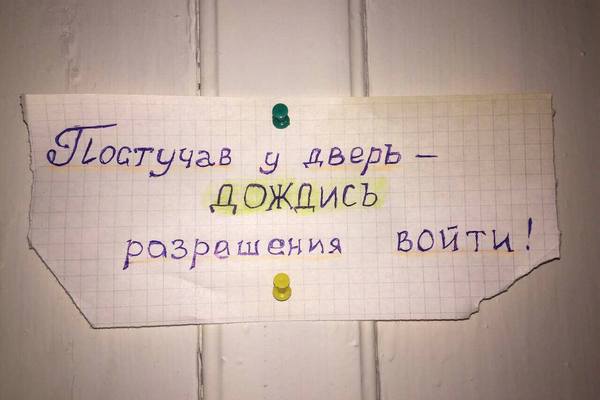 Постучав у дверь –
ДОЖДИСЬ
разрашения войти!